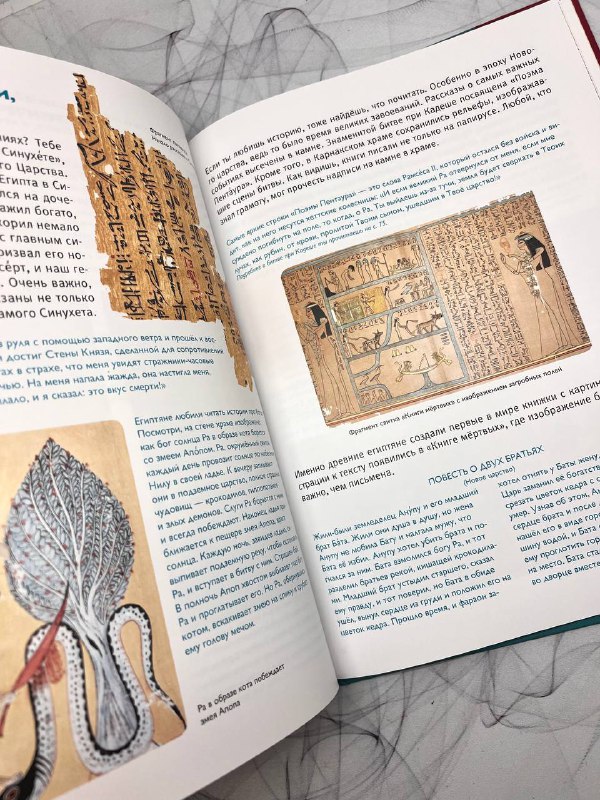 и,
ниях? Тебе
Синухе́те»,
го Царства.
Египта в Си-
нился на доче-
ажил богато,
корил немало
с главным си-
ризвал его но-
се́рт, и наш ге-
. Очень важно,
заны не только
амого Синухета.
в руля с помощью западного ветра и прошёл и вос-
й достиг Стены Князя, сделанной для сопротивления
тах в страхе, что меня увидят стражники-часовые
чью. На меня напала жажда, она настигла меня.
лало, и я сказал: это вкус смерти!»
Фрагмент
Египтяне любили читать истории про
Посмотри, на стене храма изображено,
как бог солнца Ра в образе кота борется
со змеем Апо́пом. Ра, окружённый свитой,
каждый день проводит солнце по небесному
Нилу в своей ладье. К вечеру вплывают
они в подземное царство, полное
чудовищ — крокодилов, гиппопотамов
и злых демонов. Слуги Ра борются с ними
и всегда побеждают. Наконец, ладья
приближается к пещере змея Апопа, врага
солнца. Каждую ночь змеище жадно
выпивает подземную реку, чтобы остановить
Ра, и вступает в битву с ним. Страшен
В полночь Апоп хвостом взбивает
Ра и проглатывает его. Но Ра, обернувшись
котом, вскакивает змею на спину и рубит
ему голову мечом.
Ра в образе кота побеждает
змея Апопа
Если ты любишь историю, тоже найдёшь, что почитать. Особенно в эпоху Ново-
го царства, ведь то было время великих завоеваний. Рассказы о самых важных
событиях высечены в камне. Знаменитой битве при Кадеше посвящена «Поэма
Пентаура». Кроме того, в Карнакском храме сохранились рельефы, изображав-
шие сцены битвы. Как видишь, книги писали не только на папирусе. Любой, кто
знал грамоту, мог прочесть надписи на камне в храме.
Самые яркие строки «Поэмы Пентаура» — это слова Рамсе́са II, который остался без войска и ви-
дит, как на него несутся хеттские колесницы: «И если великий Ра отвернулся от меня, если мне
суждено погибнуть на поле, то когда, о Ра, Ты выйдешь из-за тучи, земля будет сверкать в Твоих
лучах, как рубин, от крови, пролитой Твоим сыном, ушедшим в Твоё царство!»
Подробнее о битве при Кадеше ты прочитаешь на с. 75.
Фрагмент свитка «Книги мёртвых» с изображением загробных полей
Именно древние египтяне создали первые в мире книжки с картин
страции к тексту появились в «Книге мёртвых», где изображение б
важно, чем письмена.
ПОВЕСТЬ О ДВУХ БРАТЬЯХ
(Новое царство)
Жили-были земледелец Ану́пу и его младший
брат Ба́та. Жили они душа в душу, но жена
Анупу не любила Бату и налгала мужу, что
Бата её избил. Анупу хотел убить брата и по-
гнался за ним. Бата взмолился богу Ра, и тот
разделил братьев рекой, кишащей крокодила-
ми. Младший брат устыдил старшего, сказал
ему правду, и тот поверил, но Бата в обиде
ушёл, вынул сердце из груди и положил его на
цветок кедра. Прошло время, и фараон за-
хотел отнять у Баты жену,
Царь заманил её богатств
срезать цветок кедра с с
умер. Узнав об этом, Ан
сердце брата и после
нашёл его в виде горо
шину водой, и Бата
ему проглотить гор
на место. Бата ста
во дворце вместе